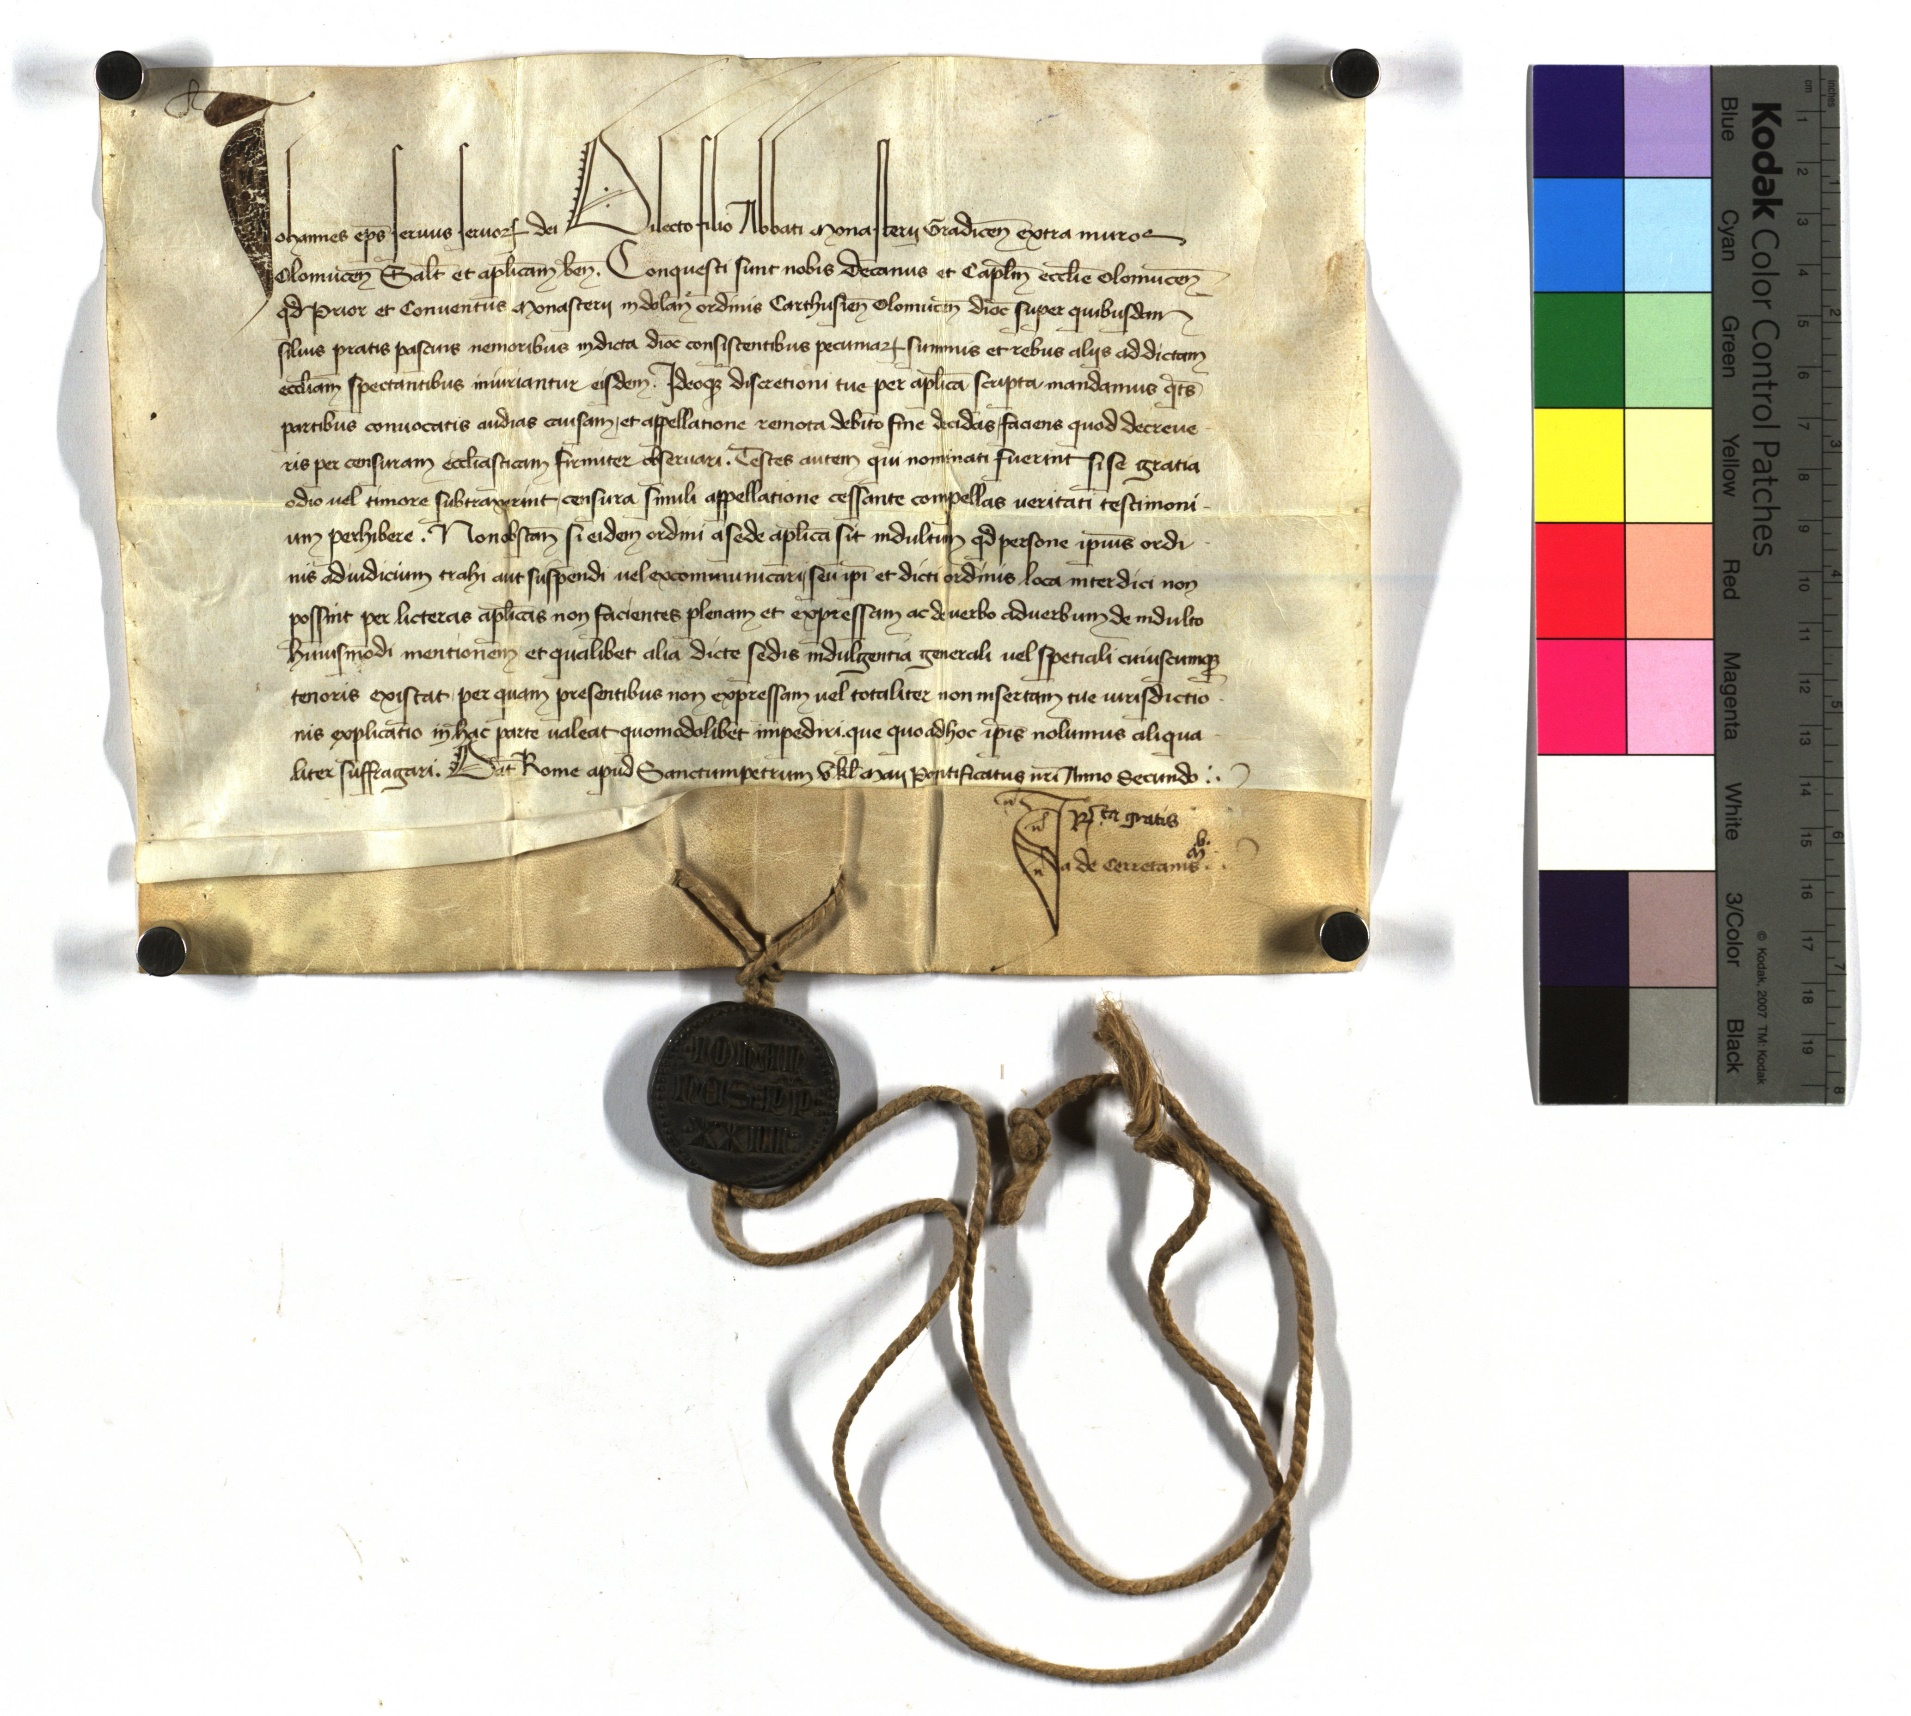 Johannes ep̄s seruus seruoꝝ dei Dilecto filio Abbati Monasterij Gradicen̄ extra muros
Olomucen̄ Salt̄ et aplicam ben̄. Conquesti sunt nobis Decanus et Capl̄m ecclīe Olomucen̄
qd̄ Prior et Conuentus Monasterij in dolan̄ ordinis Carthusien̄ Olomucen̄ dioc̄ super quibusdam
siluis pratis pascuis nemoribus in dicta dioc̄ consistentibus pecuniaꝝ summis et rebus alijs ad dictam
eccliam spectantibus iniuriantur eisdem. Ideoqꝫ discretioni tue per aplica scripta mandamus qt̄s
partibus conuocatis audias causam, et appellatione remota debito fine decidas, faciens quod decreue
ris per censuram ecclīasticam firmiter obseruari. Testes autem qui nominati fuerint si se gratia
odio uel timore subtraxerint, censura simili appellatione cessante compellas ueritati testimoni
um perhibere. Nonobstan̄ si eidem ordini a sede aplica sit indultum qd̄ persone ipius ordi
nis ad iudicium trahi aut suspendi uel excommunicari, seu ipi et dicti ordinis loca interdici non
possint per licteras aplicas non facientes plenam et expressam ac de uerbo aduerbum de indulto
huiusmodi mentionem et qualibet alia dicte sedis indulgentia generali uel speciali cuiuscumqꝫ
tenoris existat per quam presentibus non expressam uel totaliter non insertam tue iurisdictio
nis explicatio in hac parte ualeat quomodolibet impediri. que quo ad hoc ipis nolumus aliqua
liter suffragari. Dat̄ Rome apud Sanctumpetrum v. kl̄ Maij Pontificatus nr̄i Anno Secundo :.
Rta gratis
Ja de Cerretanis
IOHA
NNES PP
XXIII
Kodak Color Control Patches
Blue Cyan Green Yellow Red Magenta White 3/Color Black
© Kodak, 2007 TM: Kodak
inches 1 2 3 4 5 6 7 8
cm 1 2 3 4 5 6 7 8 9 10 11 12 13 14 15 16 17 18 19